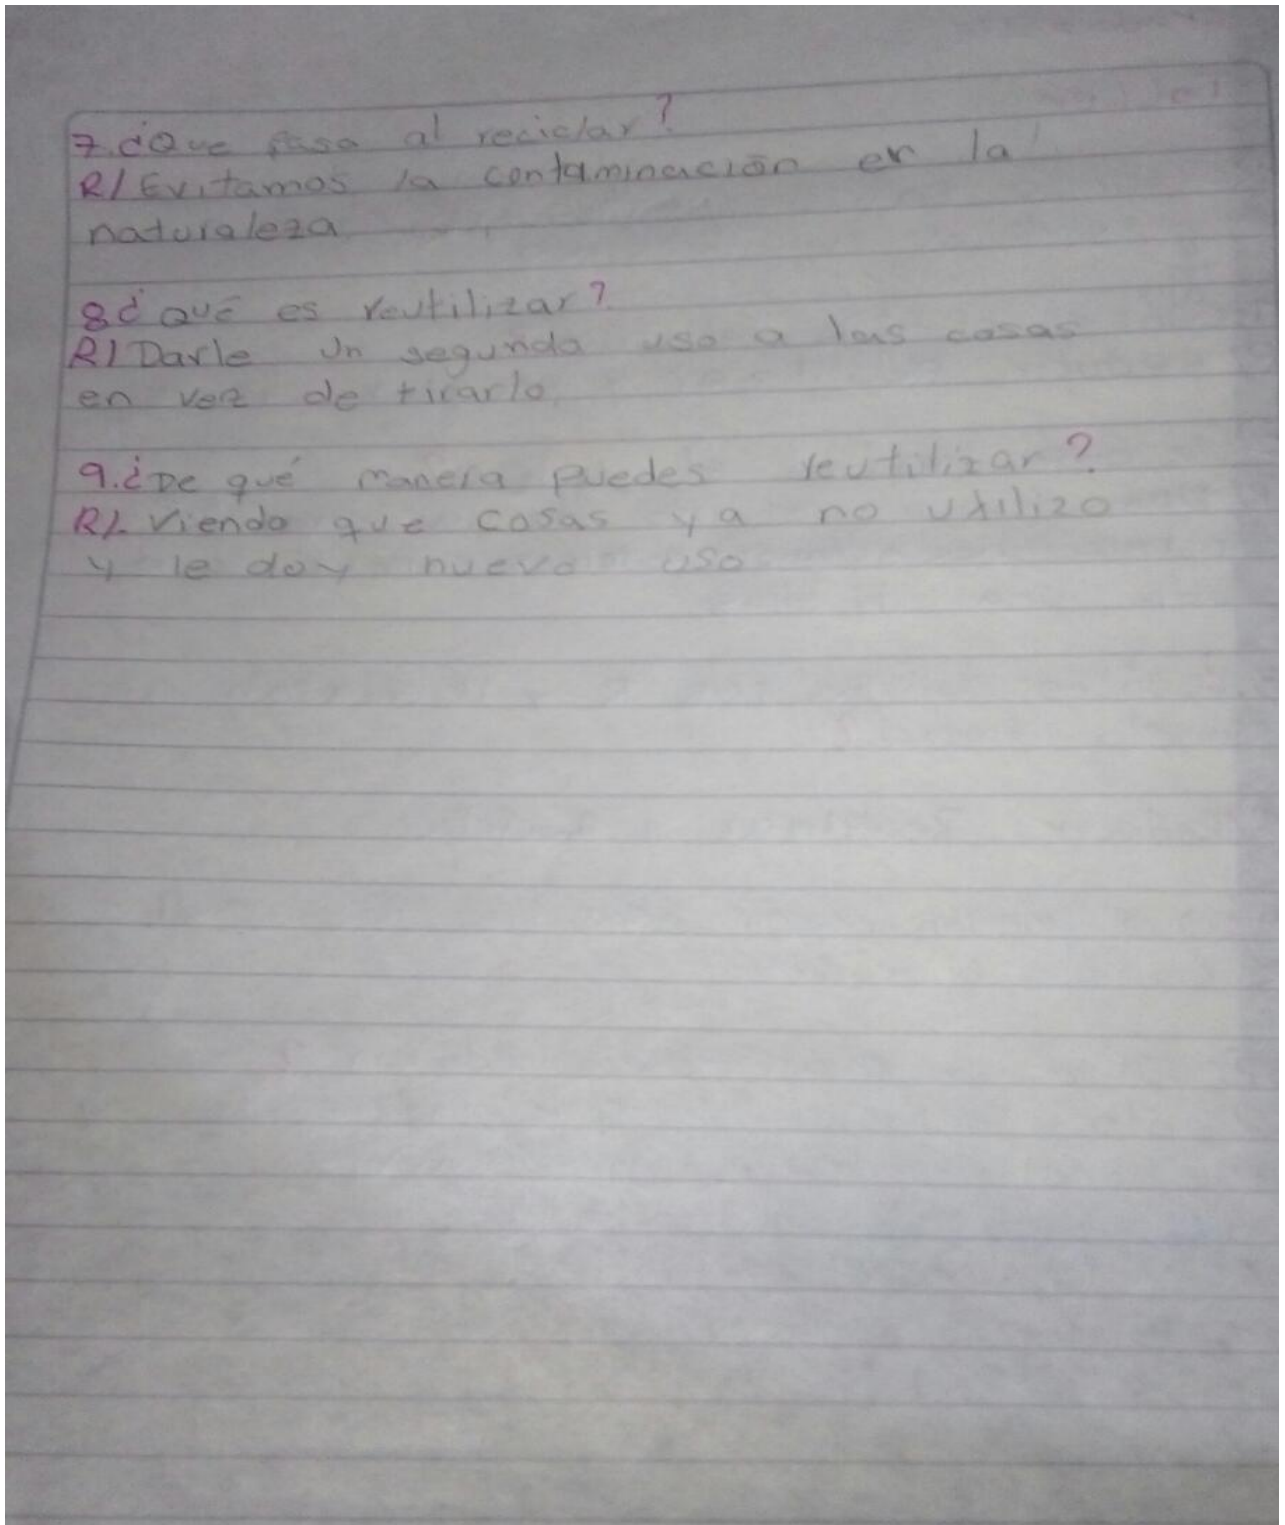 7. ¿Que pasa al reciclar?
R/ Evitamos la contaminación en la
naturaleza
8 ¿Qué es reutilizar?
R/ Darle un segundo uso a las cosas
en vez de tirarlo.
9. ¿De qué manera puedes reutilizar?
R/. Viendo que cosas ya no utilizo
y le doy nuevo uso